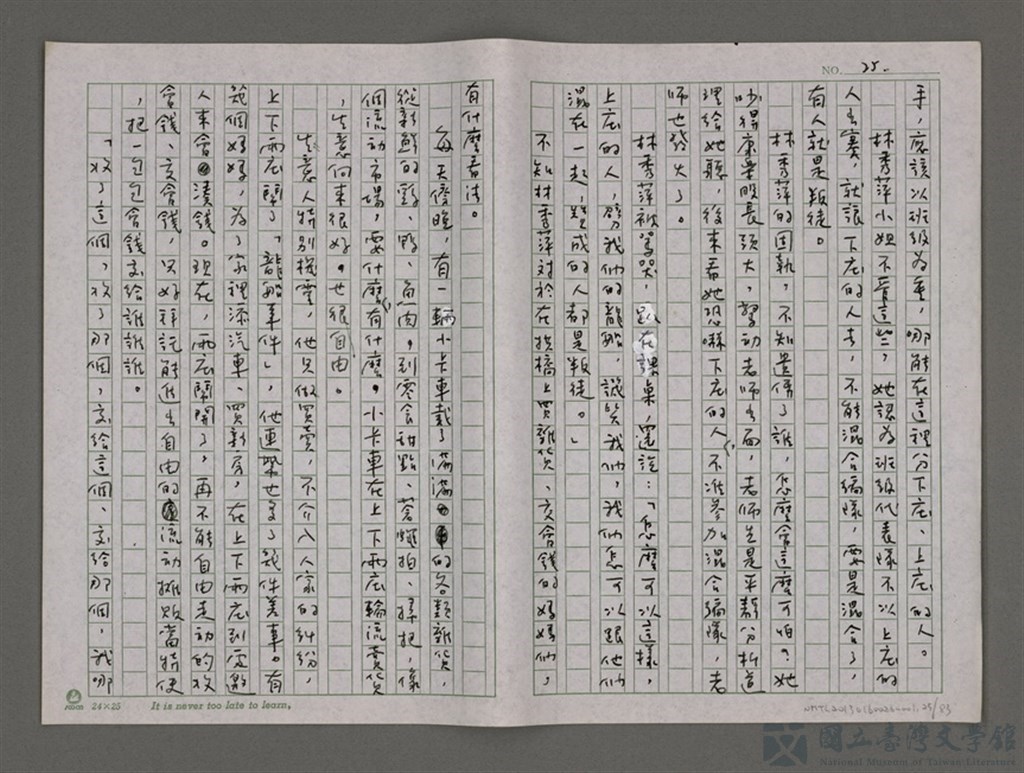 NO. 25.
手，應該以班級為重，哪能在這裡分下庄、上庄的人。
林秀萍小姐不管這些，她認為班級代表隊不以上庄的
人為主，就讓下庄的人去，不能混合編隊，要是混合了，
有人就是叛徒。
林秀萍的固執，不知遺傳了誰，怎麼會這麼可怕？她
吵得康樂股長頭大，驚動老師出面，老師先是平靜分析道
理給她聽，後來看她恐嚇下庄的人不准參加混合編隊，老
師也發火了。
林秀萍被罵哭，趴在課桌，還說：「怎麼可以這樣，
上庄的人，劈我們的龍船，譏笑我們，我們怎可以跟他們
混在一起，贊成的人都是叛徒。」
不知林秀萍對於在拱橋上買雜貨、交會錢的媽媽們，
有什麼看法。
每天傍晚，有一輛小卡車載了滿滿的各類雜貨，
從新鮮的野、鴨、魚肉，到零食甜點、蒼蠅拍、掃把，像
個流動市場，要什麼有什麼。小卡車在上下兩庄輪流賣貨
，生意向來很好。也很自由。
生意人特別機靈，他只做買賣，不介入人家的糾紛，
上下兩庄鬧了「龍船事件」，他連帶也多了幾件差事。有
幾個媽媽，為了家裡添汽車、買新房，在上下兩庄到處邀
人來會湊錢。現在，兩庄鬧開了，再不能自由走動的收
會錢、交會錢，只好拜託能進出自由的流動攤販當特使
，把一包包會錢交給誰誰誰。
「收了這個，收了那個，交給這個、交給那個，我哪
24×25
It is never too late to learn.
國立臺灣文學館
National Museum of Taiwan Literature